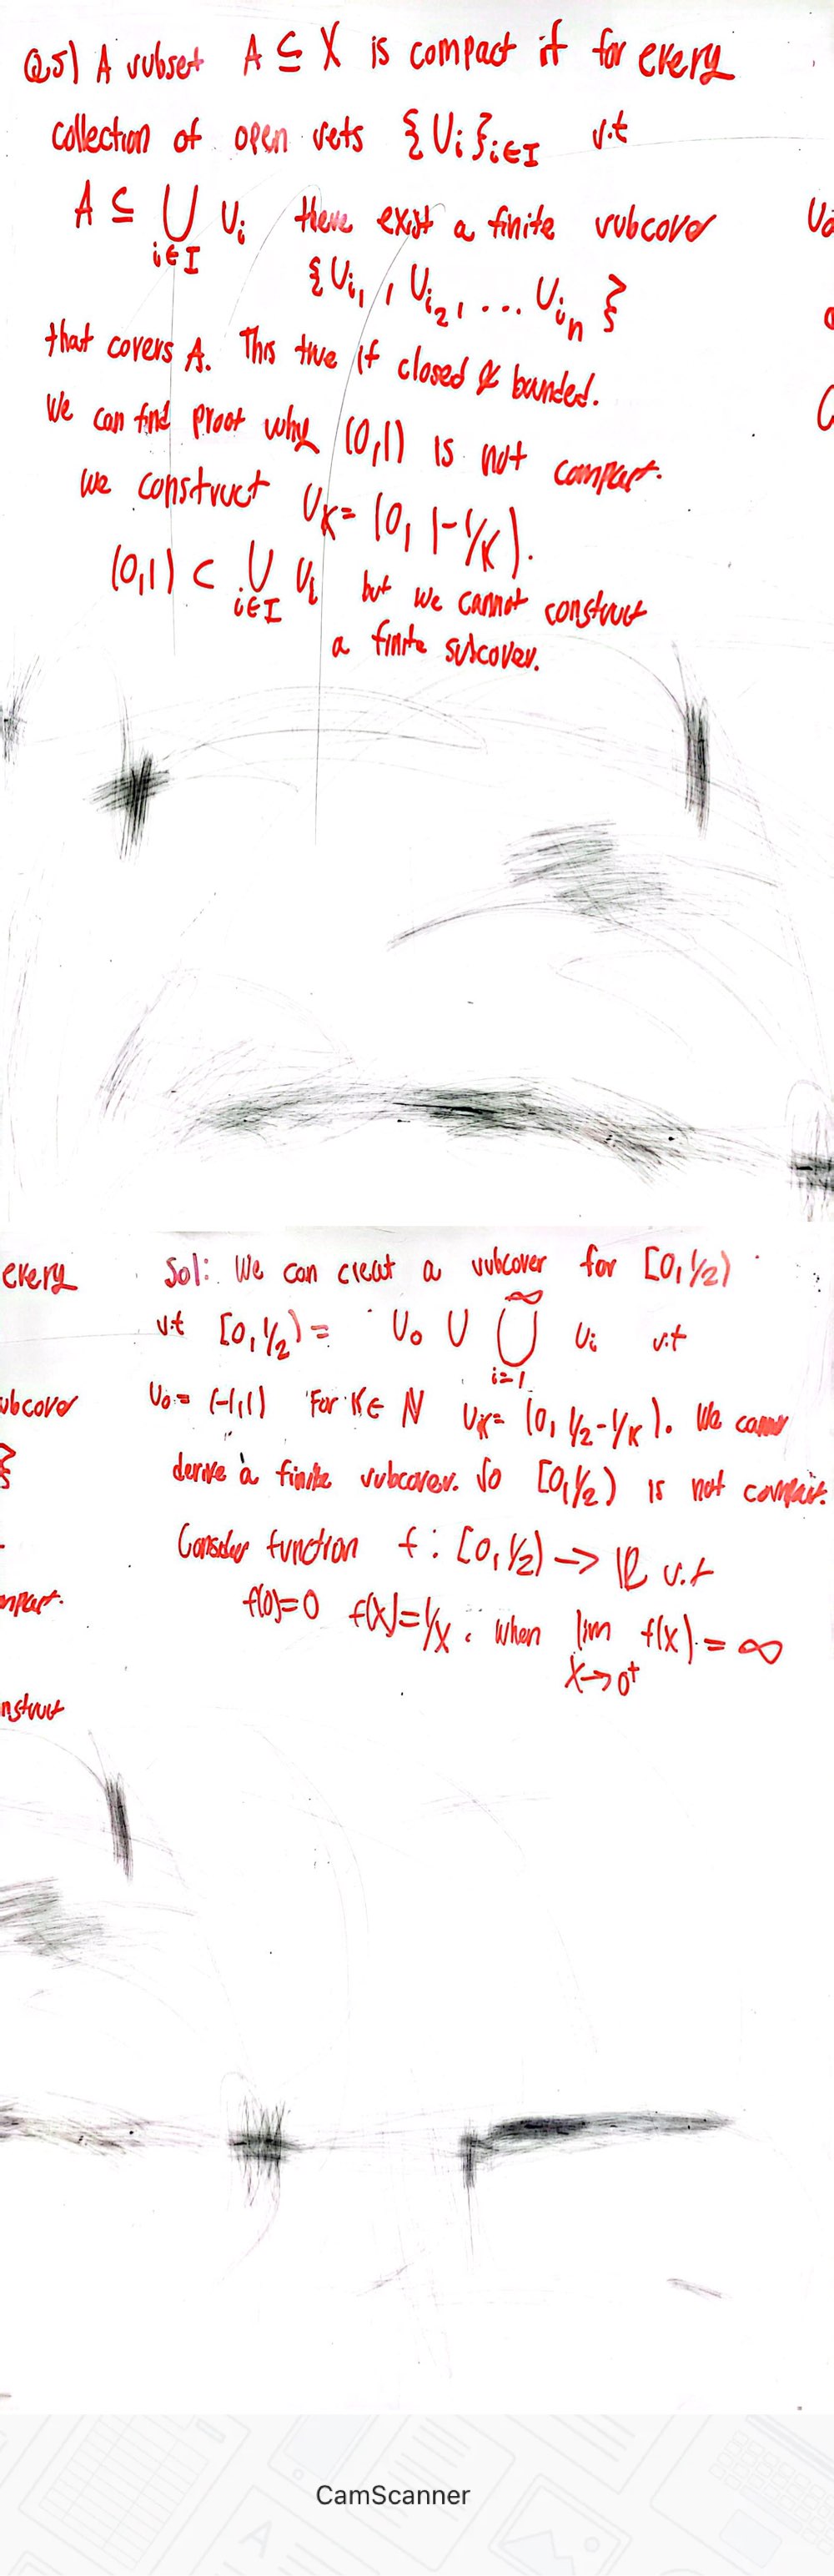 Q5) A subset A ⊆ X is compact if for every
collection of open sets {Ui}i∈I s.t
A ⊆ ⋃i∈I Ui there exist a finite subcover
{Ui1, Ui2, ... Uin}
that covers A. This true if closed & bunded.
We can find proof why (0,1) is not compact.
we construct UK = (0, 1-1/K).
(0,1) ⊂ ⋃i∈I Ui but we cannot construct
a finite subcover.
every
Sol: We can creat a subcover for [0,1/2)
s.t [0,1/2) = U0 ∪ ⋃i=1^∞ Ui s.t
ubcover
U0 = (-1,1) For K ∈ ℕ UK = (0, 1/2-1/K). We cannot
derive a finite subcover. So [0,1/2) is not compact.
Consider function f : [0,1/2) → ℝ s.t
mpact.
f(0)=0 f(x)=1/x. when lim x→0+ f(x) = ∞
nstruct
CamScanner